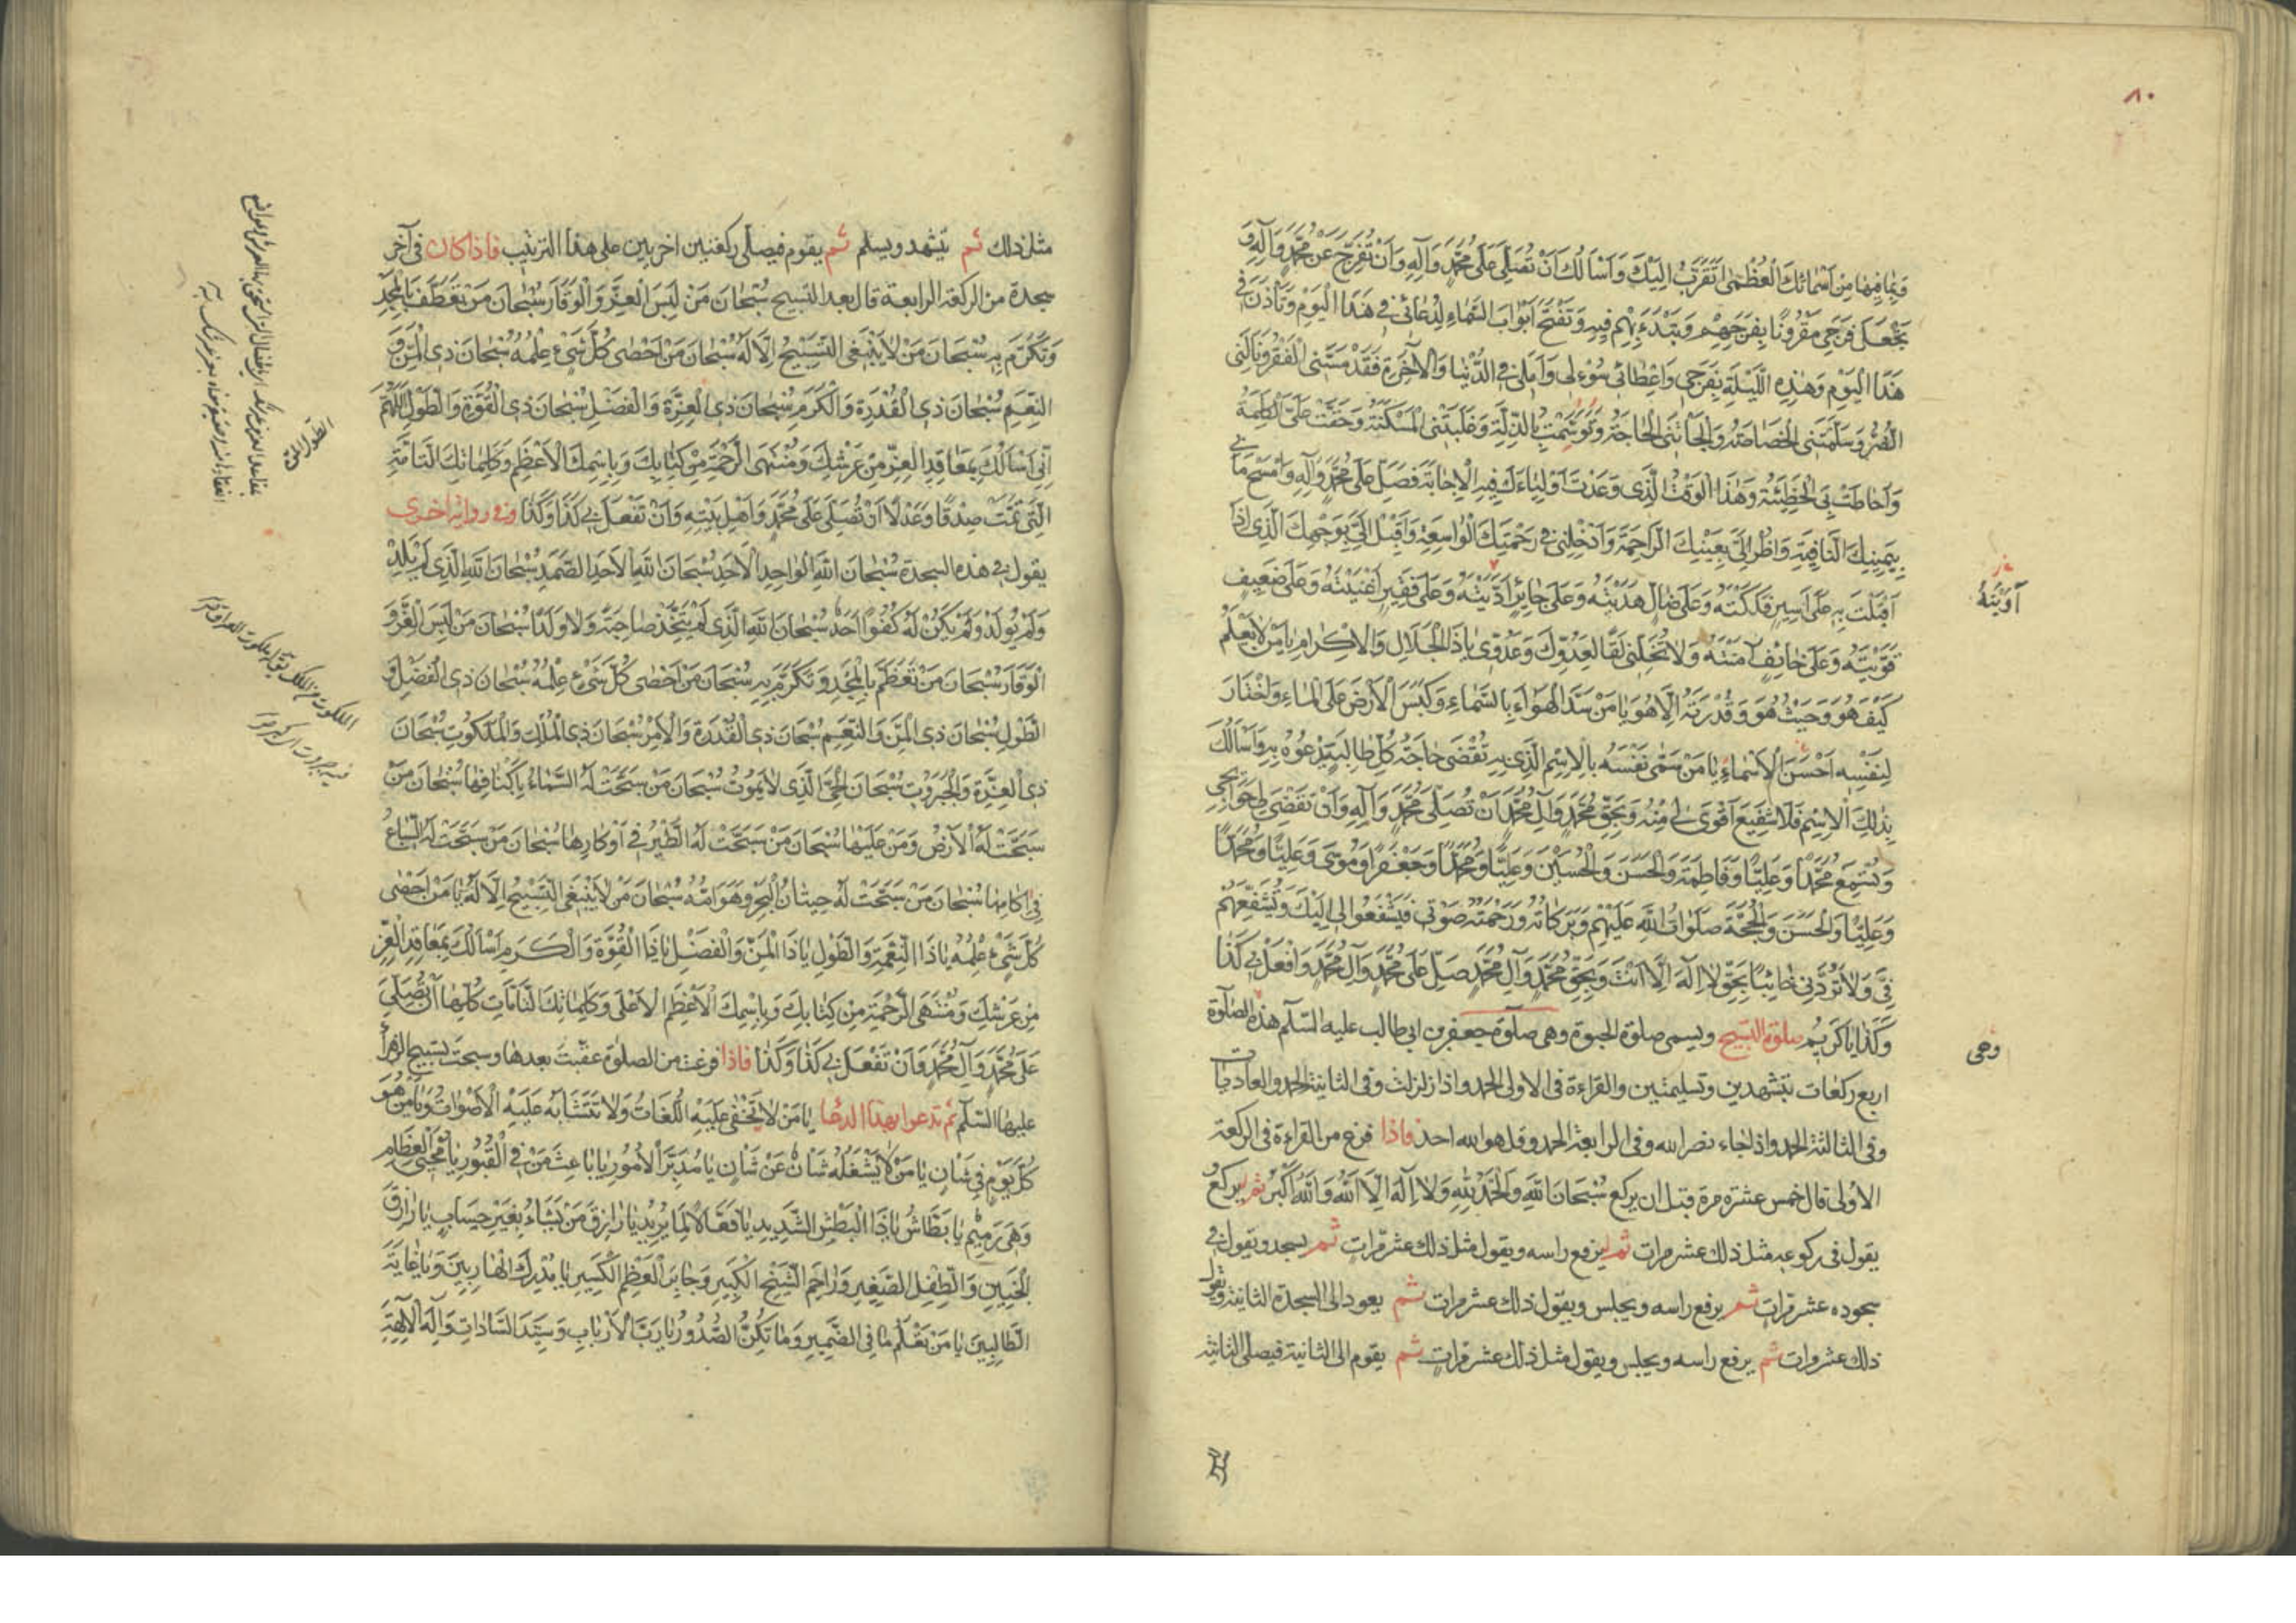 ٨٠
وَبِمَا فِيهَا مِنْ أَسْمَائِكَ الْعُظْمَى أَتَقَرَّبُ إِلَيْكَ وَأَسْأَلُكَ أَنْ تُصَلِّيَ عَلَى مُحَمَّدٍ وَآلِهِ وَأَنْ تُفَرِّجَ عَنْ مُحَمَّدٍ وَآلِهِ وَ
تَجْعَلَ فَرَجِي مَقْرُونًا بِفَرَجِهِمْ وَتَبْدَءَ بِهِمْ فِيهِ وَتَفْتَحَ أَبْوَابَ السَّمَاءِ لِدُعَائِي فِي هَذَا الْيَوْمِ وَتَأْذَنَ فِي
هَذَا الْيَوْمِ وَهَذِهِ اللَّيْلَةِ بِفَرَجِي وَإِعْطَائِي سُؤْلِي وَأَمَلِي فِي الدُّنْيَا وَالْآخِرَةِ فَقَدْ مَسَّنِي الْفَقْرُ وَنَالَنِي
الضُّرُّ وَسَلَّمَتْنِي الْخَصَاصَةُ وَأَلْجَأَتْنِي الْحَاجَةُ وَتَوَسَّمْتُ بِالذِّلَّةِ وَغَلَبَتْنِي الْمَسْكَنَةُ وَحَقَّتْ عَلَيَّ الْكَلِمَةُ
وَأَحَاطَتْ بِيَ الْخَطِيئَةُ وَهَذَا الْوَقْتُ الَّذِي وَعَدْتَ أَوْلِيَاءَكَ فِيهِ الْإِجَابَةَ فَصَلِّ عَلَى مُحَمَّدٍ وَآلِهِ وَامْسَحْ مَا بِي
بِيَمِينِكَ الشَّافِيَةِ وَانْظُرْ إِلَيَّ بِعَيْنِكَ الرَّاحِمَةِ وَأَدْخِلْنِي فِي رَحْمَتِكَ الْوَاسِعَةِ وَأَقْبِلْ إِلَيَّ بِوَجْهِكَ الَّذِي إِذَا
أَقْبَلْتَ بِهِ عَلَى أَسِيرٍ فَكَكْتَهُ وَعَلَى ضَالٍّ هَدَيْتَهُ وَعَلَى حَائِرٍ أَدَّيْتَهُ وَعَلَى فَقِيرٍ أَغْنَيْتَهُ وَعَلَى ضَعِيفٍ
آوَيْتَهُ
قَوَّيْتَهُ وَعَلَى خَائِفٍ آمَنْتَهُ وَلَا تُخَلِّنِي لَقًا لِعَدُوِّكَ وَعَدُوِّي يَا ذَا الْجَلَالِ وَالْإِكْرَامِ يَا مَنْ لَا يَعْلَمُ
كَيْفَ هُوَ وَحَيْثُ هُوَ وَقُدْرَتَهُ إِلَّا هُوَ يَا مَنْ سَدَّ الْهَوَاءَ بِالسَّمَاءِ وَكَبَسَ الْأَرْضَ عَلَى الْمَاءِ وَاخْتَارَ
لِنَفْسِهِ أَحْسَنَ الْأَسْمَاءِ يَا مَنْ سَمَّى نَفْسَهُ بِالِاسْمِ الَّذِي بِهِ تُقْضَى حَاجَةُ كُلِّ طَالِبٍ يَدْعُوهُ بِهِ وَأَسْأَلُكَ
بِذَلِكَ الِاسْمِ فَلَا شَفِيعَ أَقْوَى لِي مِنْهُ وَبِحَقِّ مُحَمَّدٍ وَآلِ مُحَمَّدٍ أَنْ تُصَلِّيَ عَلَى مُحَمَّدٍ وَآلِهِ وَأَنْ تَقْضِيَ لِي حَوَائِجِي
وَتُسْمِعَ مُحَمَّدًا وَعَلِيًّا وَفَاطِمَةَ وَالْحَسَنَ وَالْحُسَيْنَ وَعَلِيًّا وَمُحَمَّدًا وَجَعْفَرًا وَمُوسَى وَعَلِيًّا وَمُحَمَّدًا
وَعَلِيًّا وَالْحَسَنَ وَالْحُجَّةَ صَلَوَاتُ اللَّهِ عَلَيْهِمْ وَبَرَكَاتُهُ وَرَحْمَتُهُ صَوْتِي فَيَشْفَعُوا لِي إِلَيْكَ وَتُشَفِّعَهُمْ
فِيَّ وَلَا تَرُدَّنِي خَائِبًا بِحَقِّ لَا إِلَهَ إِلَّا أَنْتَ وَبِحَقِّ مُحَمَّدٍ وَآلِ مُحَمَّدٍ صَلِّ عَلَى مُحَمَّدٍ وَآلِ مُحَمَّدٍ وَافْعَلْ بِي كَذَا
وَكَذَا يَا كَرِيمُ صلوة التسبيح ويسمى صلوة الحبوة وهى صلوة جعفر بن ابى طالب عليه السلم هذه الصلوة
وهى
اربع ركعات بتشهدين وتسليمتين والقراءة فى الاولى الحمد واذا زلزلت وفى الثانية الحمد والعاديات
وفى الثالثة الحمد واذا جاء نصر الله وفى الرابعة الحمد وقل هو الله احد فاذا فرغ من القراءة فى الركعة
الاولى قال خمس عشرة مرة قبل ان يركع سُبْحَانَ اللَّهِ وَالْحَمْدُ لِلَّهِ وَلَا إِلَهَ إِلَّا اللَّهُ وَاللَّهُ أَكْبَرُ ثم يركع
يقول فى ركوعه مثل ذلك عشر مرات ثم يرفع راسه ويقول مثل ذلك عشر مرات ثم يسجد ويقول فى
سجوده عشر مرات ثم يرفع راسه ويجلس ويقول ذلك عشر مرات ثم يعود الى السجدة الثانية ويقول
ذلك عشر مرات ثم يرفع راسه ويجلس ويقول مثل ذلك عشر مرات ثم يقوم الى الثانية فيصلى الثانية
مثل ذلك ثم يتشهد ويسلم ثم يقوم فيصلى ركعتين اخريين على هذا الترتيب فاذا كان فى آخر
سجدة من الركعة الرابعة قال بعد التسبيح سُبْحَانَ مَنْ لَبِسَ الْعِزَّ وَالْوَقَارَ سُبْحَانَ مَنْ تَعَطَّفَ بِالْمَجْدِ
وَتَكَرَّمَ بِهِ سُبْحَانَ مَنْ لَا يَنْبَغِي التَّسْبِيحُ إِلَّا لَهُ سُبْحَانَ مَنْ أَحْصَى كُلَّ شَيْءٍ عِلْمُهُ سُبْحَانَ ذِي الْمَنِّ وَ
النِّعَمِ سُبْحَانَ ذِي الْقُدْرَةِ وَالْكَرَمِ سُبْحَانَ ذِي الْعِزَّةِ وَالْفَضْلِ سُبْحَانَ ذِي الْقُوَّةِ وَالطَّوْلِ اللَّهُمَّ
إِنِّي أَسْأَلُكَ بِمَعَاقِدِ الْعِزِّ مِنْ عَرْشِكَ وَمُنْتَهَى الرَّحْمَةِ مِنْ كِتَابِكَ وَبِاسْمِكَ الْأَعْظَمِ وَكَلِمَاتِكَ التَّامَّةِ
الَّتِي تَمَّتْ صِدْقًا وَعَدْلًا أَنْ تُصَلِّيَ عَلَى مُحَمَّدٍ وَأَهْلِ بَيْتِهِ وَأَنْ تَفْعَلَ بِي كَذَا وَكَذَا وفى رواية اخرى
يقول فى هذه السجدة سُبْحَانَ اللَّهِ الْوَاحِدِ الْأَحَدِ سُبْحَانَ اللَّهِ الْأَحَدِ الصَّمَدِ سُبْحَانَ اللَّهِ الَّذِي لَمْ يَلِدْ
وَلَمْ يُولَدْ وَلَمْ يَكُنْ لَهُ كُفُوًا أَحَدٌ سُبْحَانَ اللَّهِ الَّذِي لَمْ يَتَّخِذْ صَاحِبَةً وَلَا وَلَدًا سُبْحَانَ مَنْ لَبِسَ الْعِزَّ وَ
الْوَقَارَ سُبْحَانَ مَنْ تَعَظَّمَ بِالْمَجْدِ وَتَكَرَّمَ بِهِ سُبْحَانَ مَنْ أَحْصَى كُلَّ شَيْءٍ عِلْمُهُ سُبْحَانَ ذِي الْفَضْلِ وَ
الطَّوْلِ سُبْحَانَ ذِي الْمَنِّ وَالنِّعَمِ سُبْحَانَ ذِي الْقُدْرَةِ وَالْأَمْرِ سُبْحَانَ ذِي الْمُلْكِ وَالْمَلَكُوتِ سُبْحَانَ
ذِي الْعِزَّةِ وَالْجَبَرُوتِ سُبْحَانَ الْحَيِّ الَّذِي لَا يَمُوتُ سُبْحَانَ مَنْ سَبَّحَتْ لَهُ السَّمَاءُ بِأَكْنَافِهَا سُبْحَانَ مَنْ
سَبَّحَتْ لَهُ الْأَرْضُ وَمَنْ عَلَيْهَا سُبْحَانَ مَنْ سَبَّحَتْ لَهُ الطَّيْرُ فِي أَوْكَارِهَا سُبْحَانَ مَنْ سَبَّحَتْ لَهُ السِّبَاعُ
فِي آكَامِهَا سُبْحَانَ مَنْ سَبَّحَتْ لَهُ حِيتَانُ الْبَحْرِ وَهَوَامُّهُ سُبْحَانَ مَنْ لَا يَنْبَغِي التَّسْبِيحُ إِلَّا لَهُ يَا مَنْ أَحْصَى
كُلَّ شَيْءٍ عِلْمُهُ يَا ذَا النِّعْمَةِ وَالطَّوْلِ يَا ذَا الْمَنِّ وَالْفَضْلِ يَا ذَا الْقُوَّةِ وَالْكَرَمِ أَسْأَلُكَ بِمَعَاقِدِ الْعِزِّ
مِنْ عَرْشِكَ وَمُنْتَهَى الرَّحْمَةِ مِنْ كِتَابِكَ وَبِاسْمِكَ الْأَعْظَمِ الْأَعْلَى وَكَلِمَاتِكَ التَّامَّاتِ كُلِّهَا أَنْ تُصَلِّيَ
عَلَى مُحَمَّدٍ وَآلِ مُحَمَّدٍ وَأَنْ تَفْعَلَ بِي كَذَا وَكَذَا فاذا فرغت من الصلوة عقبت بعدها وسبحت تسبيح الزهراء
عليها السلم ثم تدعوا بهذا الدعا يَا مَنْ لَا يَخْفَى عَلَيْهِ اللُّغَاتُ وَلَا تَتَشَابَهُ عَلَيْهِ الْأَصْوَاتُ وَيَا مَنْ هُوَ
كُلَّ يَوْمٍ فِي شَانٍ يَا مَنْ لَا يَشْغَلُهُ شَانٌ عَنْ شَانٍ يَا مُدَبِّرَ الْأُمُورِ يَا بَاعِثَ مَنْ فِي الْقُبُورِ يَا مُحْيِيَ الْعِظَامِ
وَهِيَ رَمِيمٌ يَا بَطَّاشُ يَا ذَا الْبَطْشِ الشَّدِيدِ يَا فَعَّالًا لِمَا يُرِيدُ يَا رَازِقَ مَنْ يَشَاءُ بِغَيْرِ حِسَابٍ يَا رَازِقَ
الْجَنِينِ وَالطِّفْلِ الصَّغِيرِ وَرَاحِمَ الشَّيْخِ الْكَبِيرِ وَجَابِرَ الْعَظْمِ الْكَسِيرِ يَا مُدْرِكَ الْهَارِبِينَ وَيَا غَايَةَ
الطَّالِبِينَ يَا مَنْ يَعْلَمُ مَا فِي الضَّمِيرِ وَمَا تُكِنُّ الصُّدُورُ يَا رَبَّ الْأَرْبَابِ وَسَيِّدَ السَّادَاتِ وَإِلَهَ الْآلِهَةِ